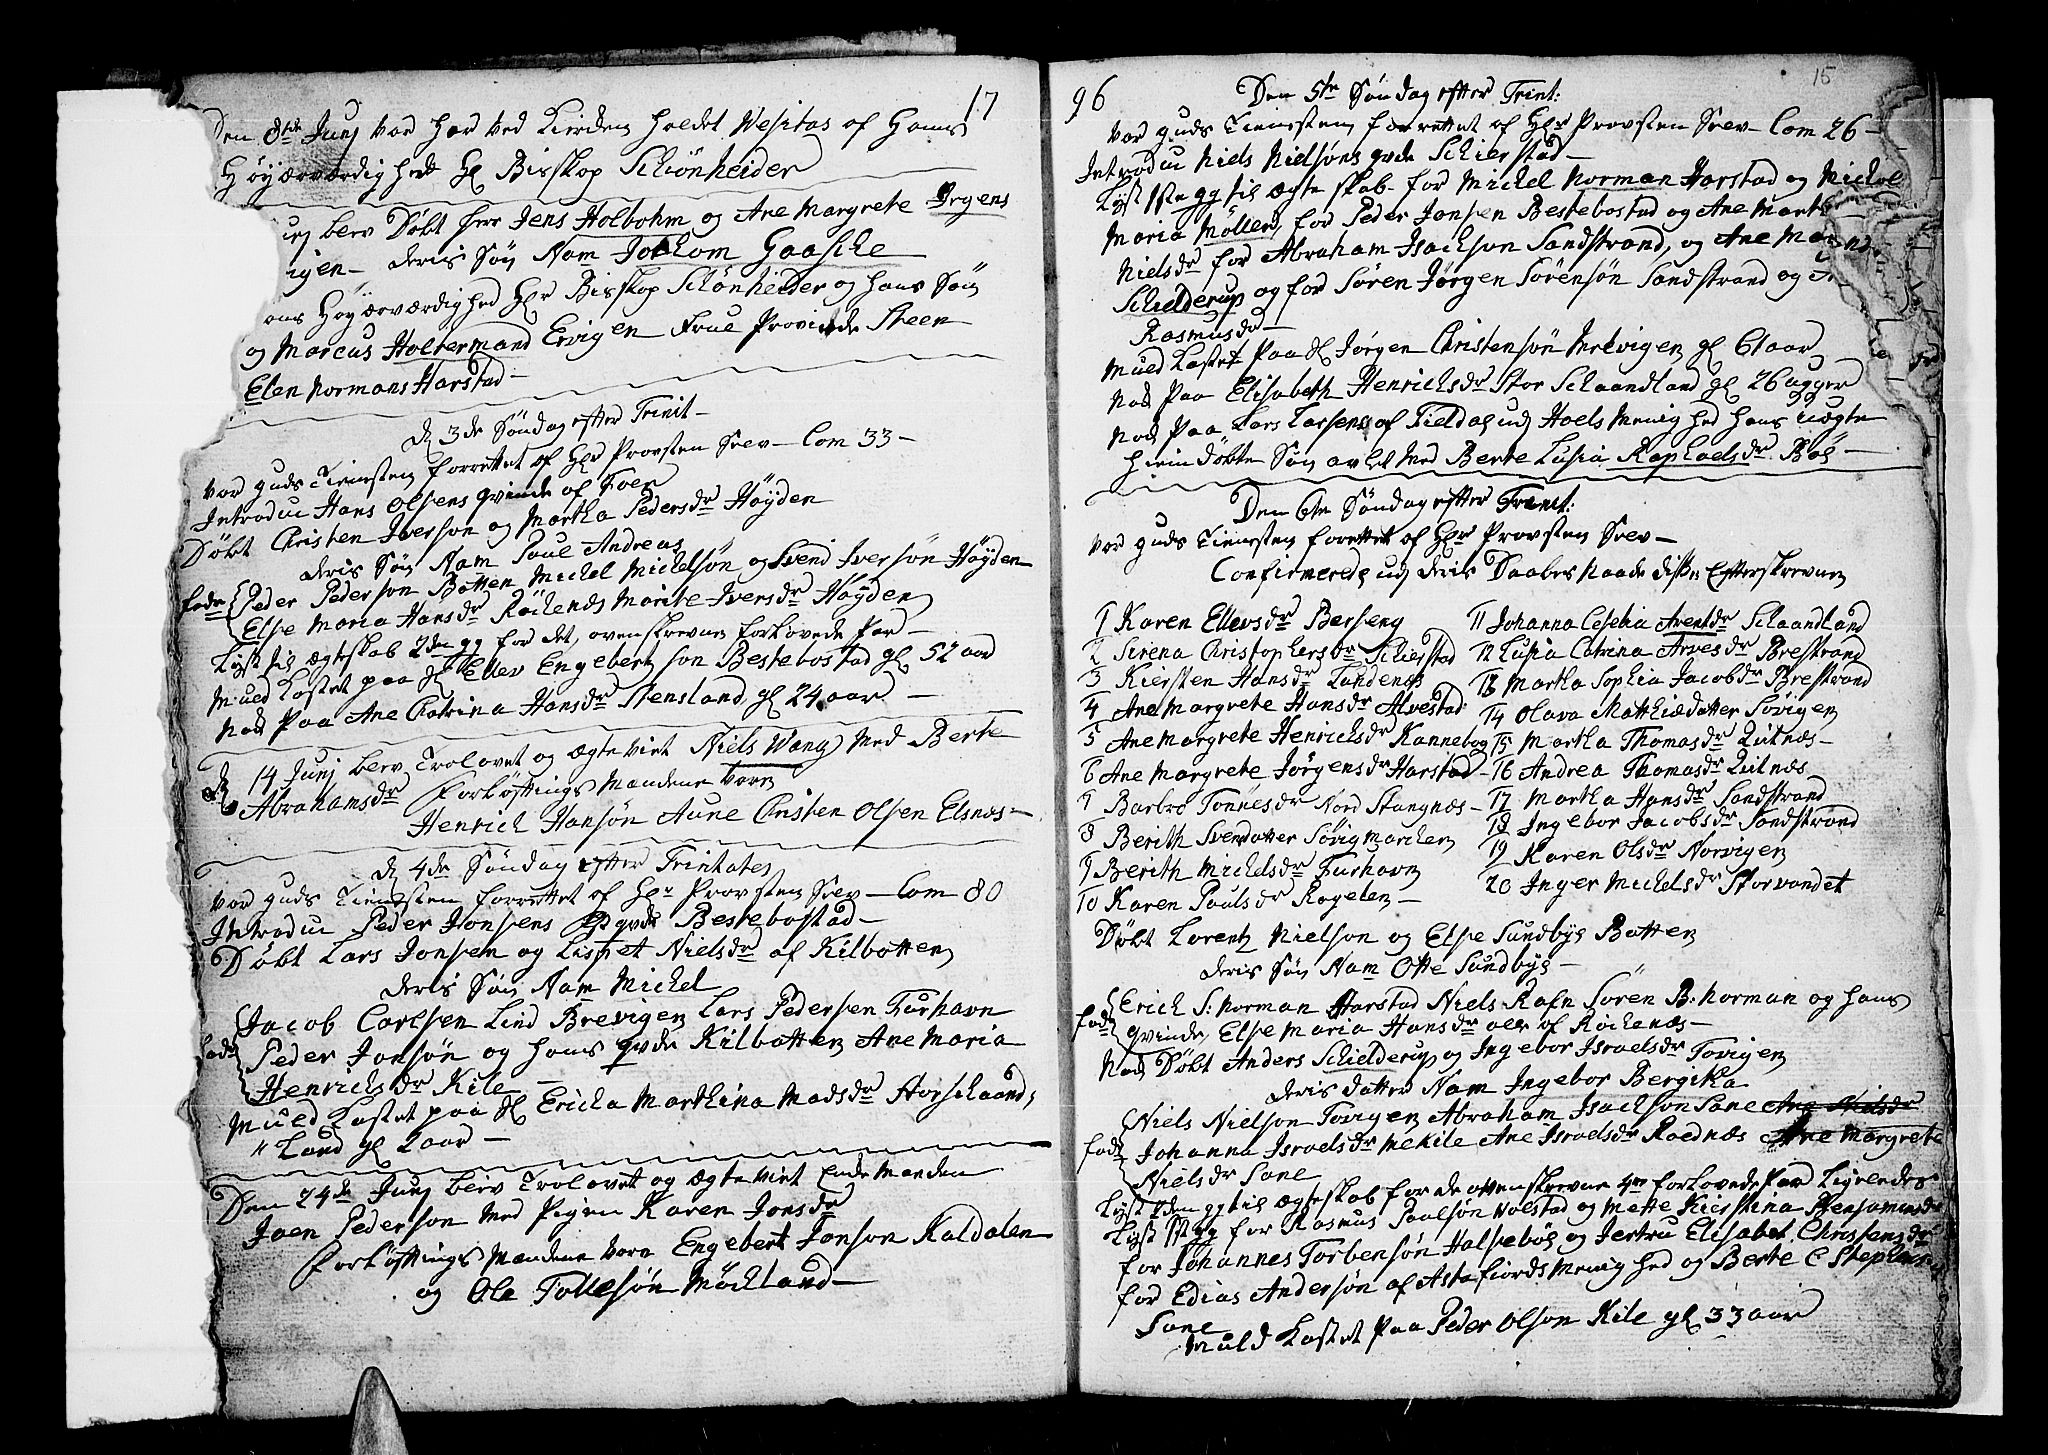 17
Den 8de Junj var her ved Kirken holdet Vesitas af Hans
Høyærværdighed Hr Biskop Schiönheider
Junj blev Døbt herr Jens Holbohm og Ane Margrete Irgens
vigen - deris Søn Nam Jochom Gaasche
Hans Høyærværdighed Hr Biskop Schönheider og hans Søn
og Marcus Holtermand Ervigen Frue Provinde Steen
Elen Normans Harstad -
D 3de Søndag efter Trinit -
var guds Tienesten forrettet af Hr Provsten Srev - Com 33 -
Introdu Hans Olsens qvinde af Foer
Døbt Christen Iverson og Martha Pedersdr Høyden
deris Søn Nam Poul Andreas
fadr Peder Pederson Botten Mickel Mickelsøn og Svend Iversøn Høyden
Else Maria Hansdr Röckenes Marite Iversdr Høyden
Lyst til ægteskab 2den gg for det ovenskrevne forlovede Par -
Muld kastet paa Sl Ellev Engebertson Bestebostad gl 52 aar
Nok Paa Ane Catrina Hansdr Stensland gl 24 aar -
D 14 Junj blev Trolovet og ægtevirt Niels Wang Med Berte
Abrahamsdr Forløftings Mandene vare
Henrich Hansøn Aune Christen Olsen Elsnæs -
D 4de Søndag efter Trinitates
var guds Tienesten forrettet af Hr Provsten Srev - Com 80
Introdu Peder Jonsens qvde Bestebostad -
Døbt Lars Jonsen og Lisbet Nielsdr af Kilbotten
deris Søn Nam Mickel
Jacob Carlsen Lind Brevigen Lars Pedersen Furhavn
fadr Peder Jonsøn og hans qvde Kilbotten Ane Maria
Henrichsdr Kile -
Muld kastet paa Sl Ericha Marthina Madsdr Storschaand
" Land gl 2 aar -
Den 24de Junj blev Trolovett og ægtevirt Enke Manden
Joen Pederson Med Pigen Karen Jonsdr
Forløftings Mandene vare Engebert Jonson Kaldalen
og Ole Tollesøn Möckland -
96
15
Den 5te Søndag efter Trint:
var guds Tienesten forrettet af Hr Provsten Srev - Com 26 -
Introdu Niels Nielsøns qvde Schierstad -
Lyst 1ste gg til ægteskab for Mickel Norman Harstad og Mickel
Maria Möller, for Peder Jonsen Bestebostad og Ane Marthe
Nielsdr for Abraham Isachson Sandstrand, og Ane Mar
Schielderup og for Sören Jörgen Sörensön Sandstrand og
Rasmusdr -
Muld kastet Paa Sl Jörgen Christensön Melvigen gl 61 aar
Nok Paa Elisabeth Henrichsdr Stor Schaandland gl 26 uger
Nok Paa Lars Larsens af Fieldal udj Hoels Menighed hans uægte
hiemdøbte Søn avlet Med Berte Lusia Raphaelsdr Böe -
Den 6te Søndag efter Trinit:
var guds Tienesten forrettet af Hr Provsten Srev -
Confirmerede udj deris Daabes Naade disse Efterskrevne
1 Karen Ellevsdr Berseng
2 Sirena Christophersdr Schierstad
3 Kiersten Hansdr Lundenes
4 Ane Margrete Hansdr Alvestad
5 Ane Margrete Henrichsdr Kannebog
6 Ane Margrete Jörgensdr Harstad -
7 Barbro Tönnesdr Nord Stangnæs -
8 Berith Svendatter Søvigmarcken
9 Berith Mickelsdr Furhavn
10 Karen Paulsdr Rogelen -
11 Johanna Ceselia Arentdr Schaandland
12 Lusia Catrina Arvesdr Brestrand
13 Martha Sophia Jacobdr Brestrand
14 Olava Matthiædatter Sövigen
15 Martha Thomasdr Qvitnæs -
16 Andrea Thomasdr Qvitnæs
17 Martha Hansdr Sandstrand
18 Ingebor Jacobsdr Sandstrand
19 Karen Olsdr Norvigen
20 Inger Mickelsdr Storvandet
Døbt Lorentz Nielson og Else Sundbye Botten
deris Søn Nam Otte Sundbye -
Erich S: Norman Harstad Niels Rafn Sören B: Norman og hans
fadr qvinde, Else Maria Hansdr alle af Röckenæs -
Nok Døbt Anders Schielderup og Ingebor Israelsdr Tovigen
deris datter Nam Ingebor Bergitha
Niels Nielson Tovigen Abraham Isachson Sane Ane Nielsdr
fadr Johanna Israelsdr Mekile Ane Israelsdr Roednæs Ane Margrete
Nielsdr Sane
Lyst 2den gg til ægteskab for de ovenskrevne 4re forlovede Par Ligeledes
Lyst 1st gg for Rasmus Paulsön Holstad og Mette Kierstina Bensaminsdr
for Johannes Torbensön Halsebøe og Jertru Elisabet Christensdr
for Edias Andersön af Astafiords Menighed og Berte E Stephens
Sane
Muld kastet Paa Peder Olson Kile gl 33 aar